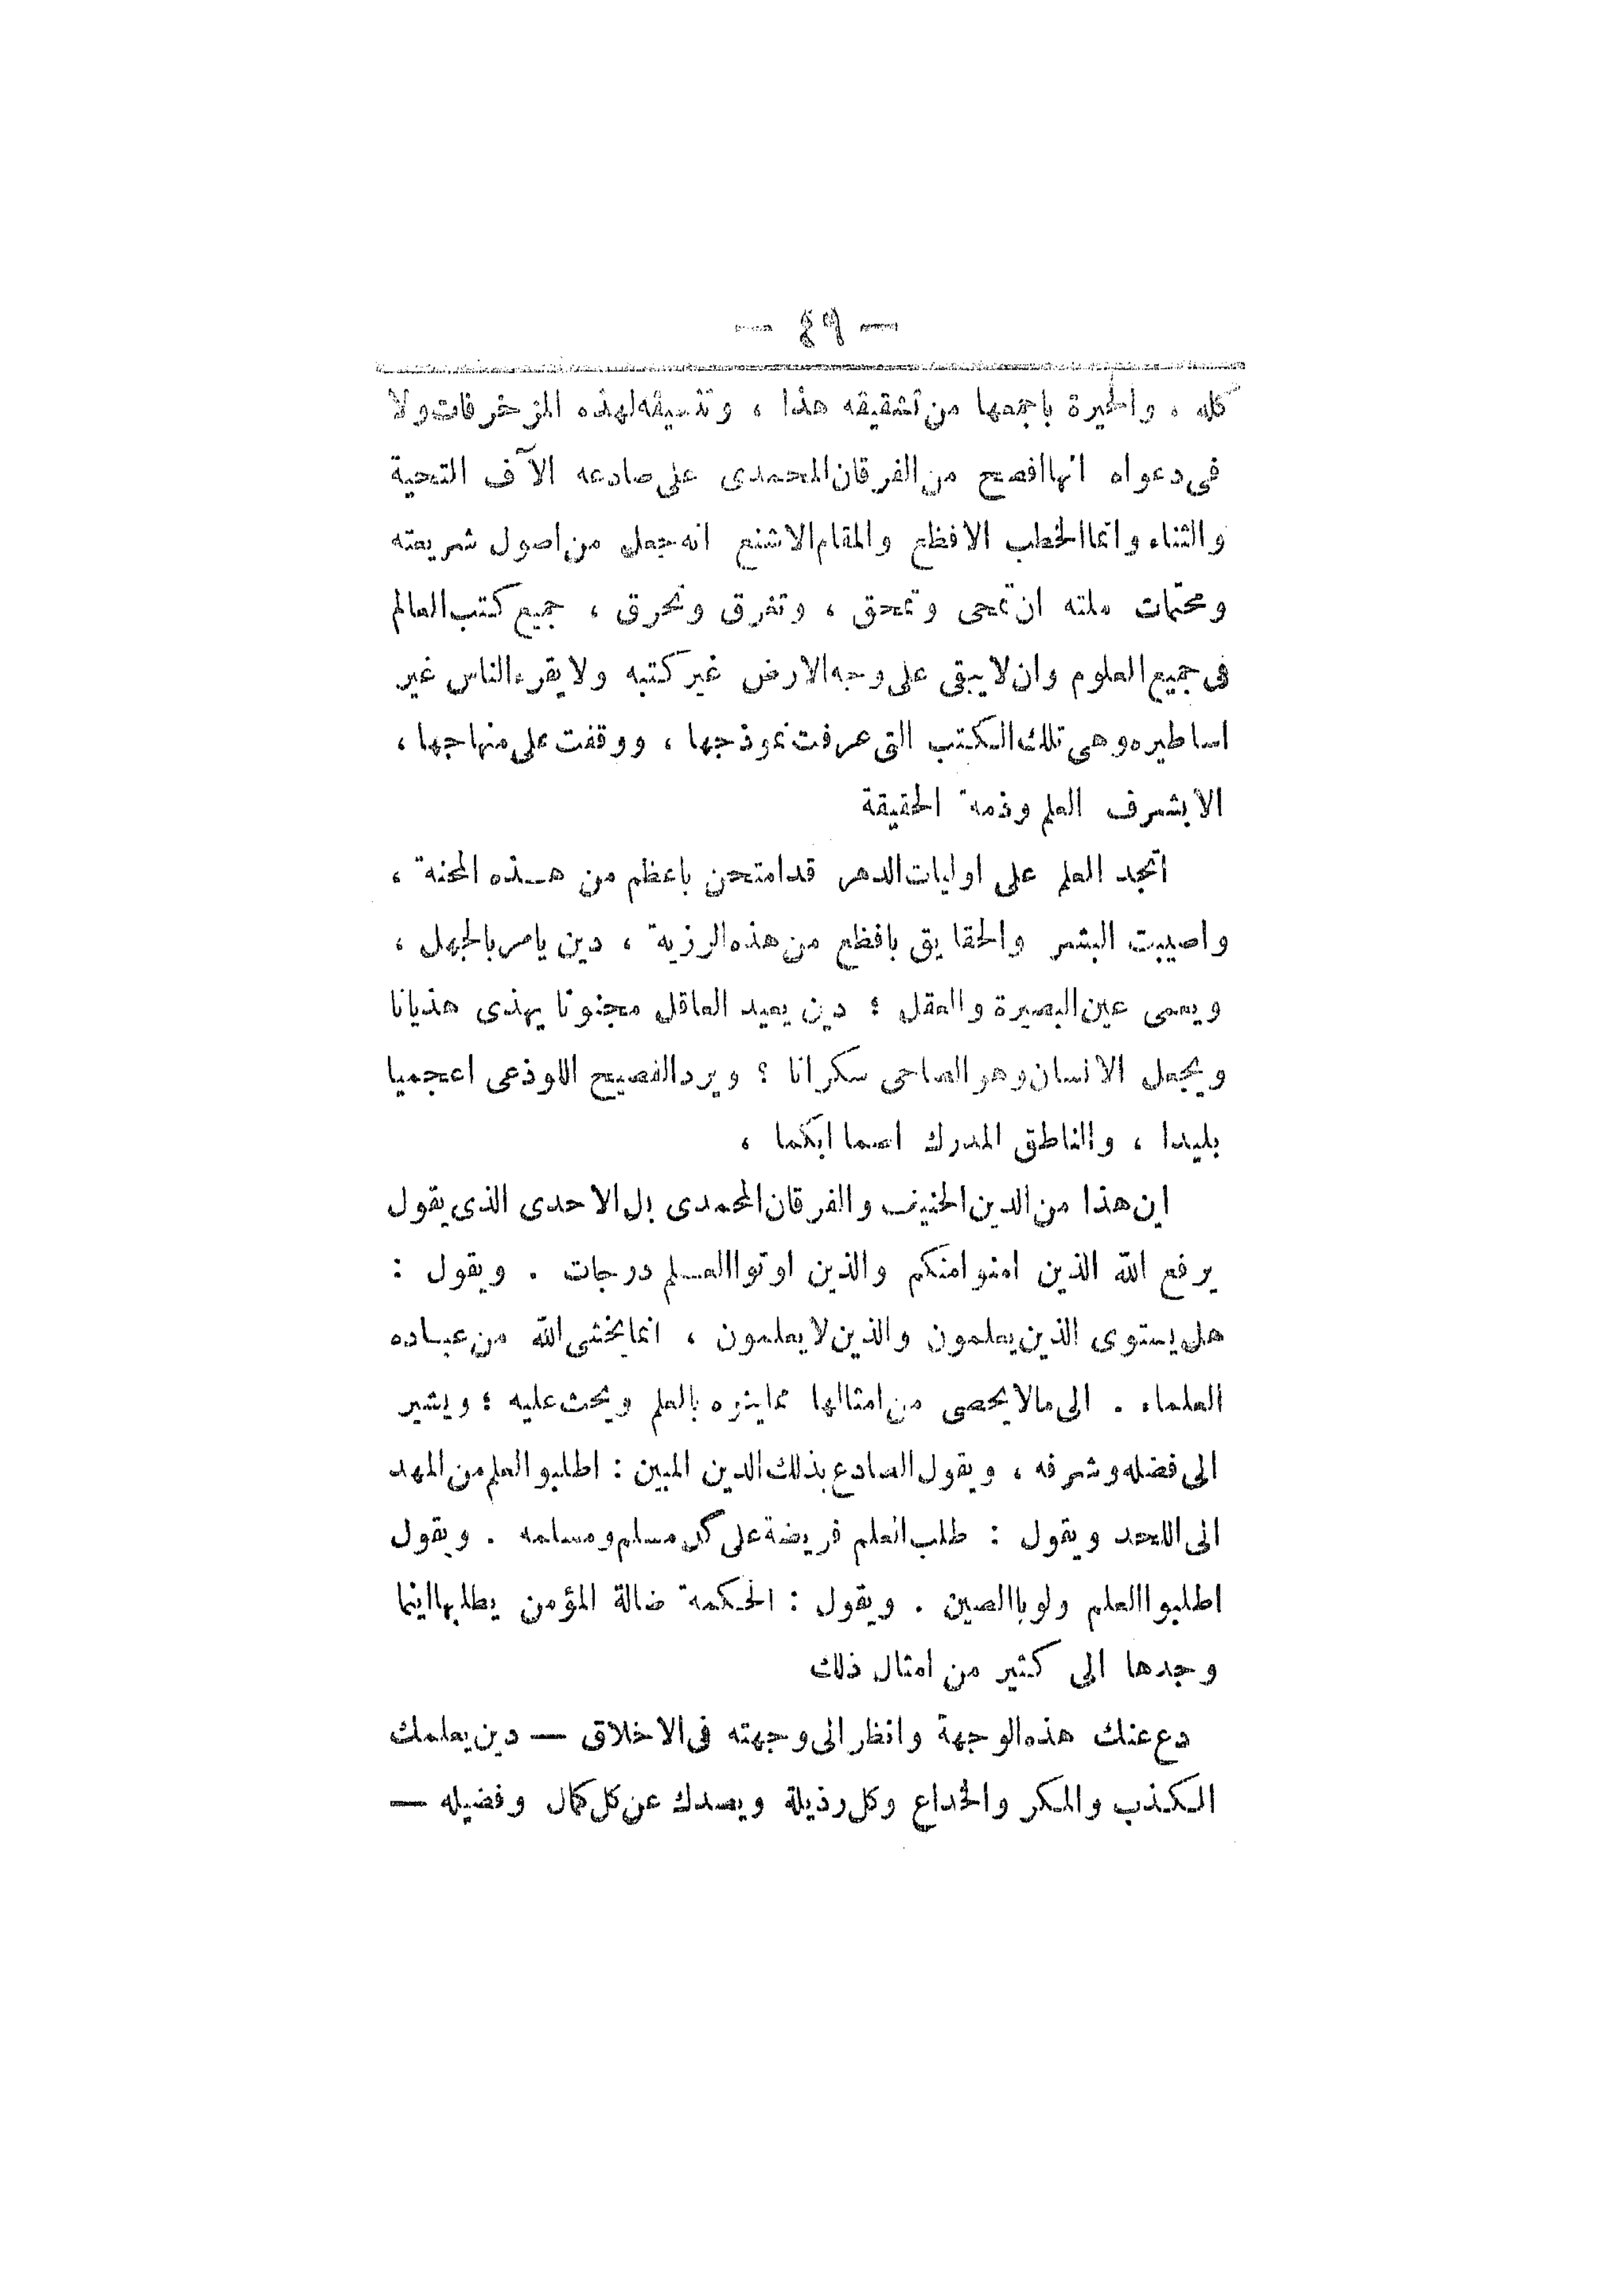 — ٤٩ —
كله ، والحيرة باجمعها من تشقيقه هذا ، وتنسيقه لهذه المزخرفات ولا
فى دعواه انها افصح من الفرقان المحمدى على صادعه الآف التحية
والثناء وانما الخطب الافظع والمقام الاشنع انه جعل من اصول شريعته
ومحتمات ملته ان تمحى وتمحق ، وتفرق وتحرق ، جميع كتب العالم
فى جميع العلوم وان لا يبقى على وجه الارض غير كتبه ولا يقرء الناس غير
اساطيره وهى تلك الكتب التى عرفت نموذجها ، ووقفت على منهاجها ،
الا بشرف العلم وذمة الحقيقة
اتجد العلم على اوليات الدهر قد امتحن باعظم من هذه المحنة ،
واصيبت البشر والحقايق بافظع من هذه الرزية ، دين يامر بالجهل ،
ويعمى عين البصيرة والعقل ؛ دين يعيد العاقل مجنونا يهذى هذيانا
ويجعل الانسان وهو الصاحى سكرانا ؟ ويرد الفصيح اللوذعى اعجميا
بليدا ، والناطق المدرك اصما ابكما ،
اين هذا من الدين الحنيف والفرقان المحمدى بل الاحدى الذى يقول
يرفع الله الذين امنوا منكم والذين اوتوا العلم درجات . ويقول :
هل يستوى الذين يعلمون والذين لا يعلمون ، انما يخشى الله من عباده
العلماء . الى ما لا يحصى من امثالها مما ينوه بالعلم ويحث عليه ؛ ويشير
الى فضله وشرفه ، ويقول الصادع بذلك الدين المبين : اطلبو العلم من المهد
الى اللحد ويقول : طلب العلم فريضة على كل مسلم ومسلمه . ويقول
اطلبوا العلم ولو باالصين . ويقول : الحكمة ضالة المؤمن يطلبها اينما
وجدها الى كثير من امثال ذلك
دع عنك هذه الوجهة وانظر الى وجهته فى الاخلاق — دين يعلمك
الكذب والمكر والخداع وكل رذيلة ويصدك عن كل كمال وفضيله —